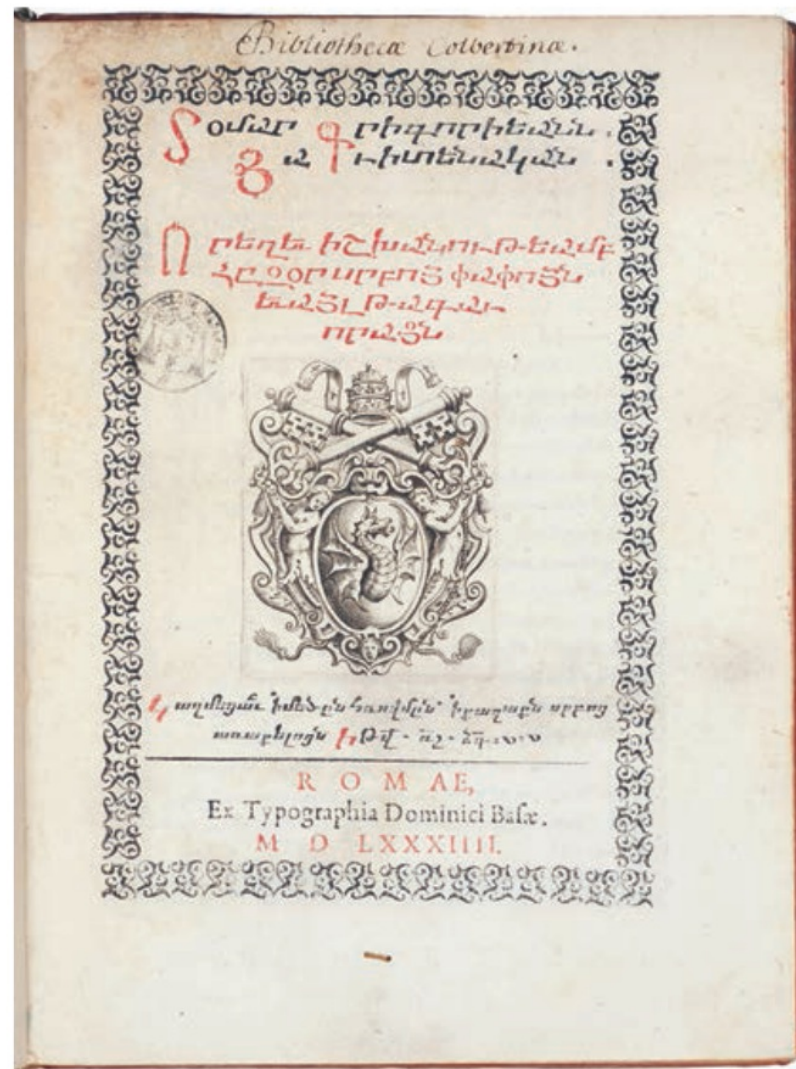 Bibliothecæ Colbertinæ.
Տօմար Գրիգորիեանն .
Յաւիտենական .
Որեղեւ իշխանութեամբ
սրբոյ փափոյն
եւայլ թագաւ
որացն
ի մեծըն Հռովմըն ի քաղաքն սրբոց
առաքելոցն ի Թվ
ROMAE,
Ex Typographia Dominici Basæ.
M D LXXXIIII.